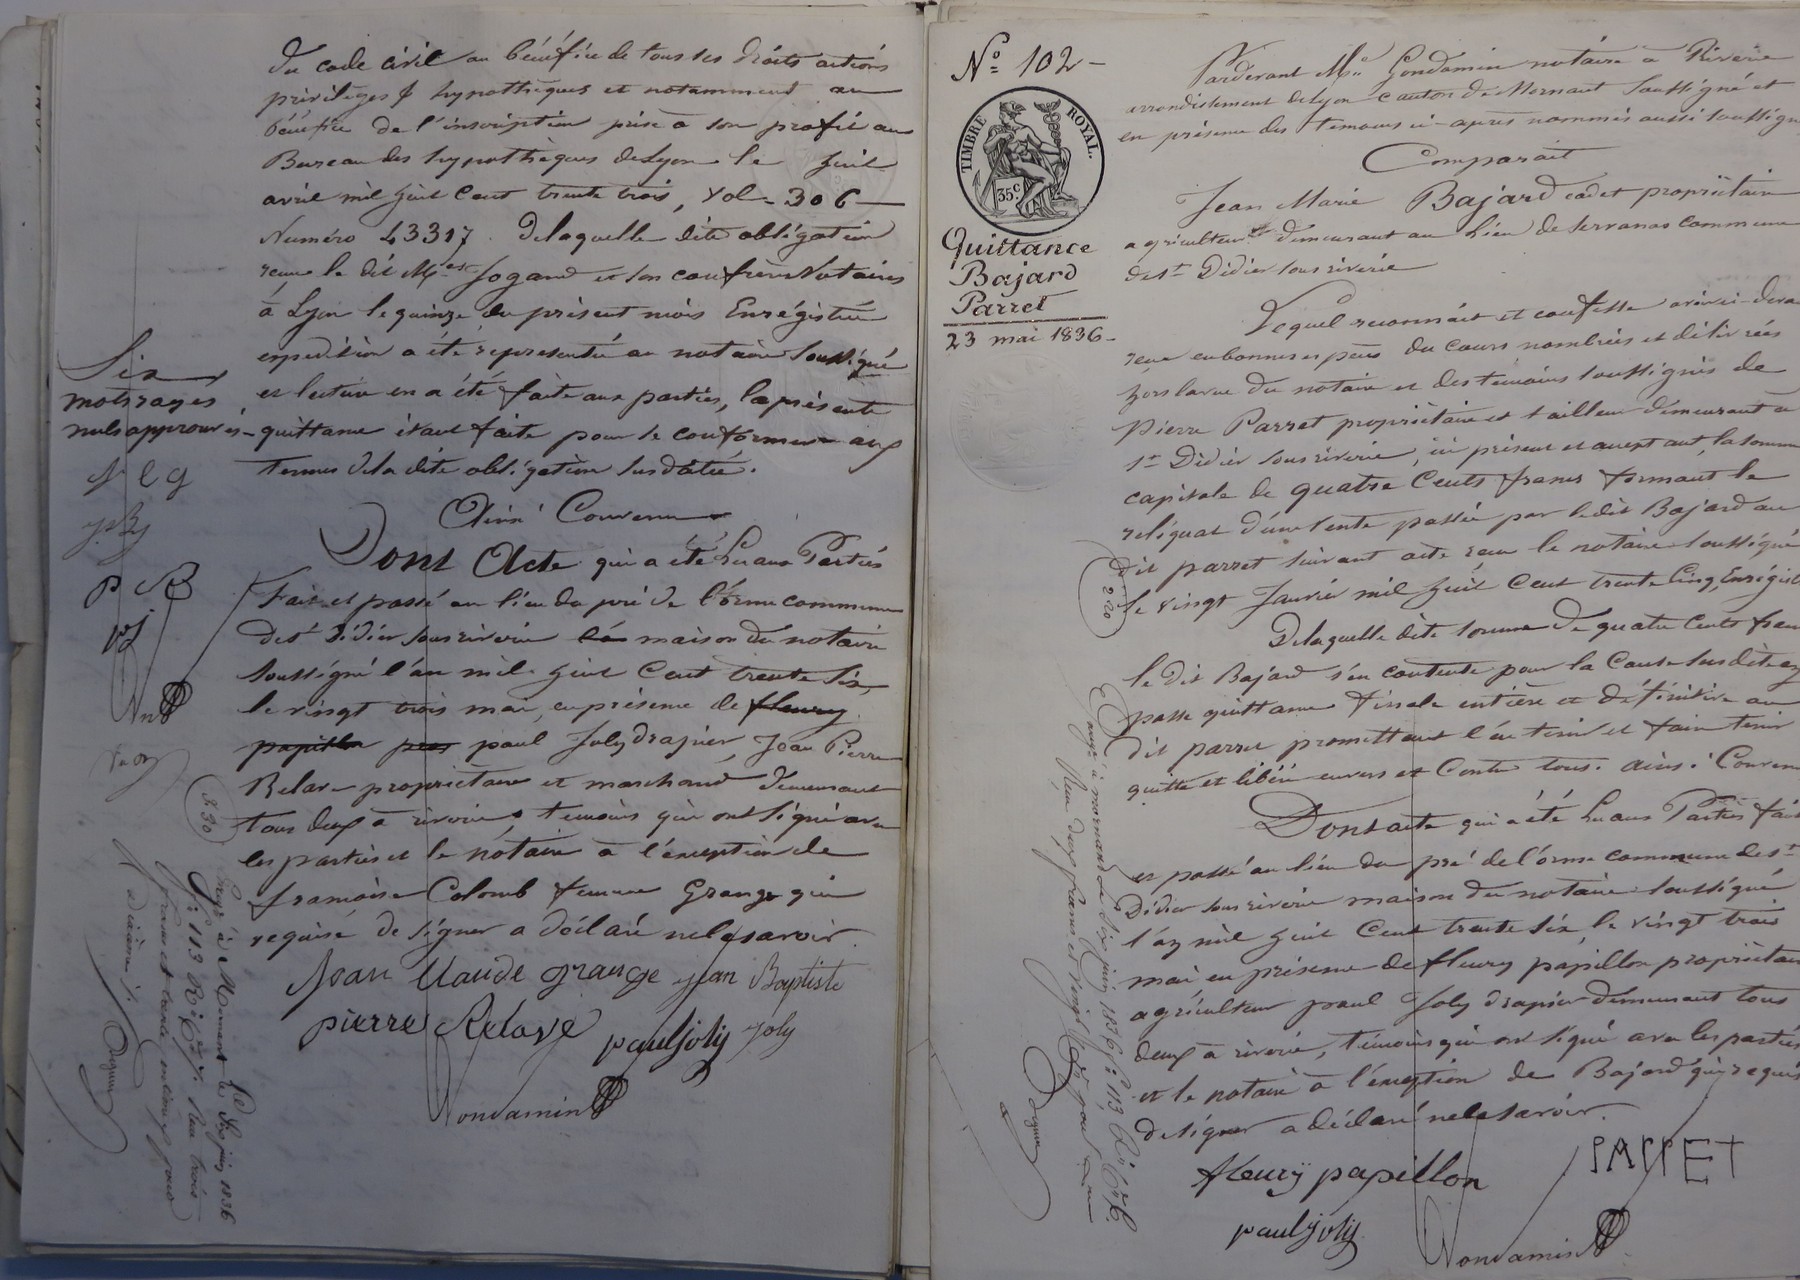 du code civil au bénéfice de tous ses droits actions
privilèges & hypothèques et notamment au
bénéfice de l'inscription prise à son profit au
Bureau des hypothèques de Lyon le huit
avril mil huit cent trente trois, vol - 306 -
Numéro 43317. De laquelle dite obligation
reçue le dit Me Jogand et son confrère Notaires
à Lyon le quinze du présent mois Enrégistrée
expedition a été représentée au notaire soussigné
et lecture en a été faite aux parties, la présente
quittance étant faite pour se conformer aux
termes de la dite obligation susdatée.
Ainsi Convenu
Dont Acte qui a été Lu aux Parties
Fait et passé au lieu du pré de l'Orme commune
de st Didier sous riverie maison du notaire
soussigné l'an mil huit Cent trente six
le vingt trois mai, en présence de fleury
papillon paul Joly drapier, Jean Pierre
Relave propriétaire et marchand demeurant
tous deux à riverie, temoins qui ont signé avec
les parties et le notaire à l'exception de
françoise Colomb femme Grange qui
requise de signer a déclaré ne le savoir.
Jean Claude grange jean Baptiste
pierre Relave paul joly joly
Condamin
Six
mots rayés
nuls approuvés
J C g
J.B j
P R
P j
Enrgé à Mornant le Six juin 1836
f. 113 R. C. 7. Reçu trois
francs et trente centimes pour
dixième.
3 30
N° 102 -
TIMBRE ROYAL.
35 c
Quittance
Bajard
Parret
23 mai 1836 -
Pardevant Me Condamin notaire à Riverie
arrondissement de Lyon canton de Mornant soussigné et
en présence des temoins ci-après nommés aussi soussignés
Comparait
Jean Marie Bajard cadet propriétaire
agriculteur demeurant au Lieu de servanos commune
de st Didier sous riverie
Lequel reconnait et confesse avoir ci-devant
reçu en bonnes espèces du cours nombrées et délivrées
hors la vue du notaire et des temoins soussignés de
Pierre Parret propriétaire et tailleur demeurant à
st Didier sous riverie, ici présent et acceptant, la somme
capitale de quatre Cents francs formant le
reliquat d'une vente passée par le dit Bajard au
dit parret suivant acte reçu le notaire soussigné
le vingt Janvier mil huit Cent trente Cinq, Enrégistré
De laquelle dite somme de quatre Cents francs
le dit Bajard s'en contente pour la Cause susdite en
passe quittance finale entière et définitive au
dit parret promettant l'en tenir et faire tenir
quitte et libéré envers et Contre tous. Ainsi Convenu
Dont acte qui a été Lu aux Parties fait
et passé au lieu du pré de l'orme commune de st
Didier sous riverie maison du notaire soussigné
l'an mil huit Cent trente six le vingt trois
mai en présence de fleury papillon propriétaire
agriculteur paul Joly drapier demeurant tous
deux à riverie, témoins qui ont signé avec les parties
et le notaire à l'exception de Bajard qui requis
de signer a déclaré ne le savoir.
fleury papillon PARRET
paul joly Condamin
2 20
Enrgé à mornant le Six juin 1836 f. 113 R. C. 6.
Reçu deux francs et vingt centimes pour dixième